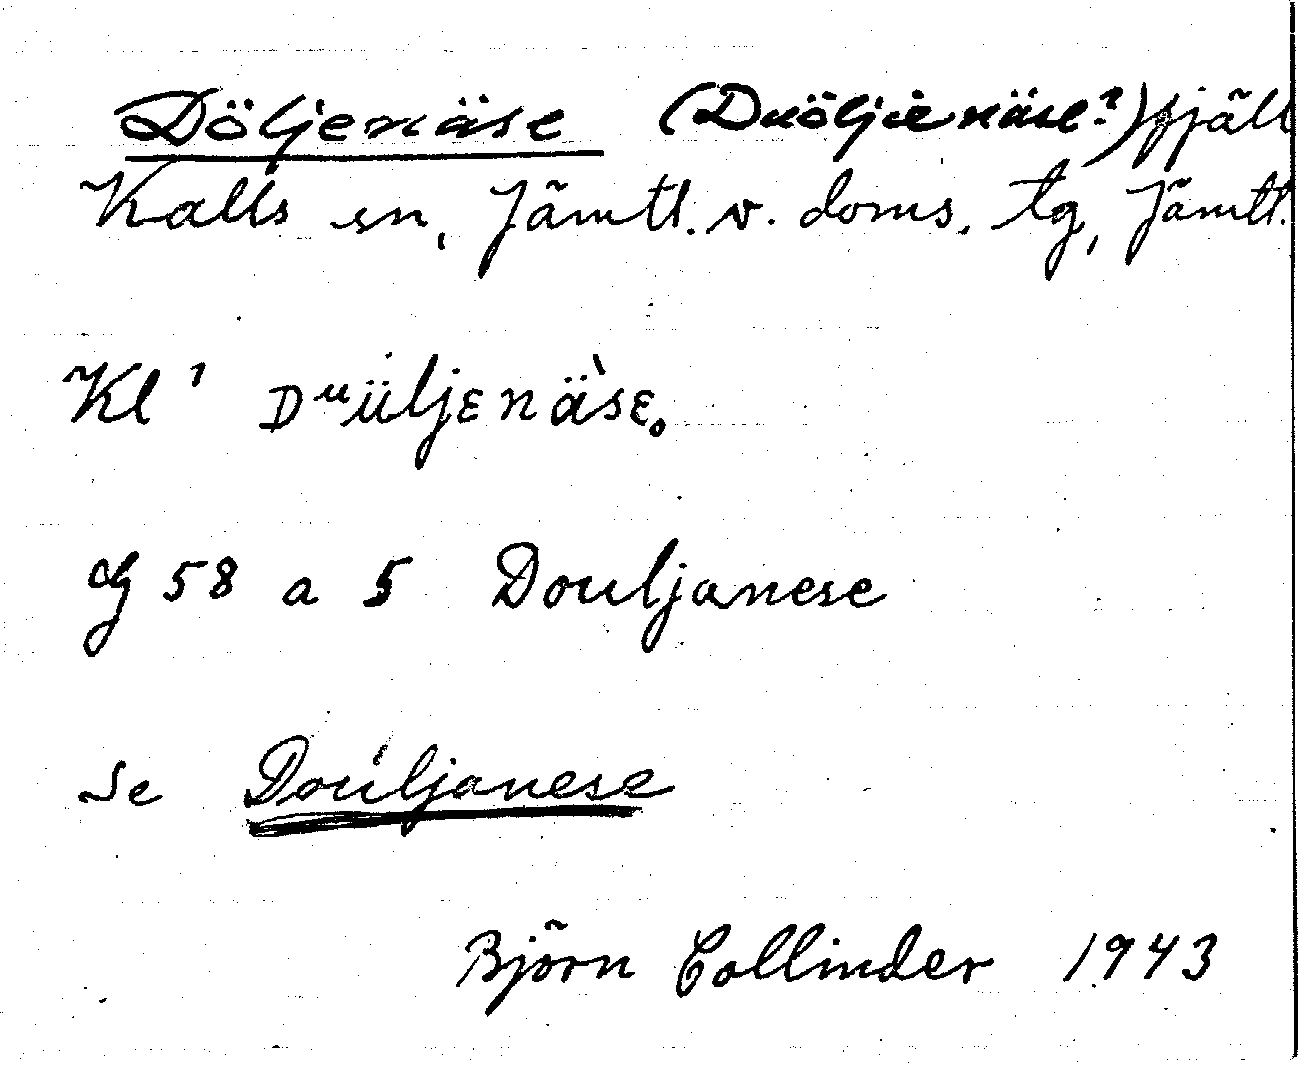 Döljenäse (Duöljenäse?) fjäll
Kalls sn, Jämtl. v. doms. tg, Jämtl.
Kl ' Dᵘüljɛnä̀sɛ.
G 58 a 5 Douljanese
Se Douljanese
Björn Collinder 1943